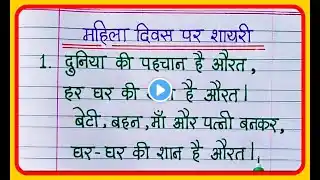 महिला दिवस पर शायरी
1. दुनिया की पहचान है औरत,
हर घर की है औरत।
बेटी, बहन, माँ और पत्नी बनकर,
घर-घर की शान है औरत।